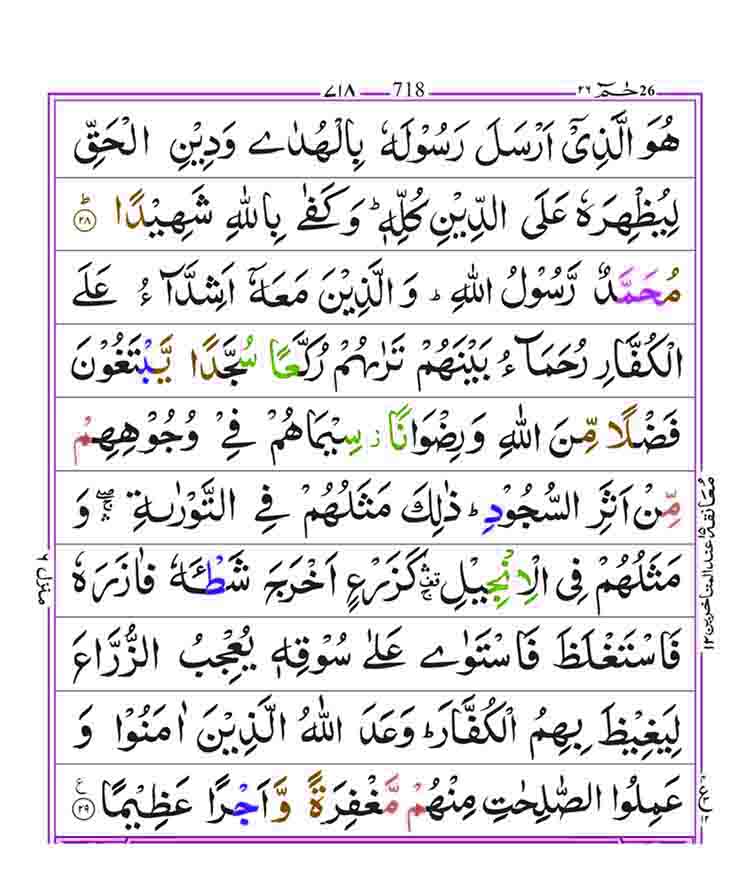 ٧١٨ 718 حٰمٓ ٢٦ 26
هُوَ الَّذِیْۤ اَرْسَلَ رَسُوْلَهٗ بِالْهُدٰی وَدِیْنِ الْحَقِّ
لِیُظْهِرَهٗ عَلَی الدِّیْنِ كُلِّهٖ ؕ وَكَفٰی بِاللّٰهِ شَهِیْدًا ؕ ٢٨
مُحَمَّدٌ رَّسُوْلُ اللّٰهِ ؕ وَالَّذِیْنَ مَعَهٗۤ اَشِدَّآءُ عَلَی
الْكُفَّارِ رُحَمَآءُ بَیْنَهُمْ تَرٰىهُمْ رُكَّعًا سُجَّدًا یَّبْتَغُوْنَ
فَضْلًا مِّنَ اللّٰهِ وَرِضْوَانًا ؗ سِیْمَاهُمْ فِیْ وُجُوْهِهِمْ
مِّنْ اَثَرِ السُّجُوْدِ ؕ ذٰلِكَ مَثَلُهُمْ فِی التَّوْرٰىةِ ۛۖۚ وَ
مَثَلُهُمْ فِی الْاِنْجِیْلِ ۛ۫ۚ كَزَرْعٍ اَخْرَجَ شَطْـَٔهٗ فَاٰزَرَهٗ
فَاسْتَغْلَظَ فَاسْتَوٰی عَلٰی سُوْقِهٖ یُعْجِبُ الزُّرَّاعَ
لِیَغِیْظَ بِهِمُ الْكُفَّارَ ؕ وَعَدَ اللّٰهُ الَّذِیْنَ اٰمَنُوْا وَ
عَمِلُوا الصّٰلِحٰتِ مِنْهُمْ مَّغْفِرَةً وَّاَجْرًا عَظِیْمًا ٢٩ ع
معانقة ١٥ عند المتاخرین ١٢
منزل ٦